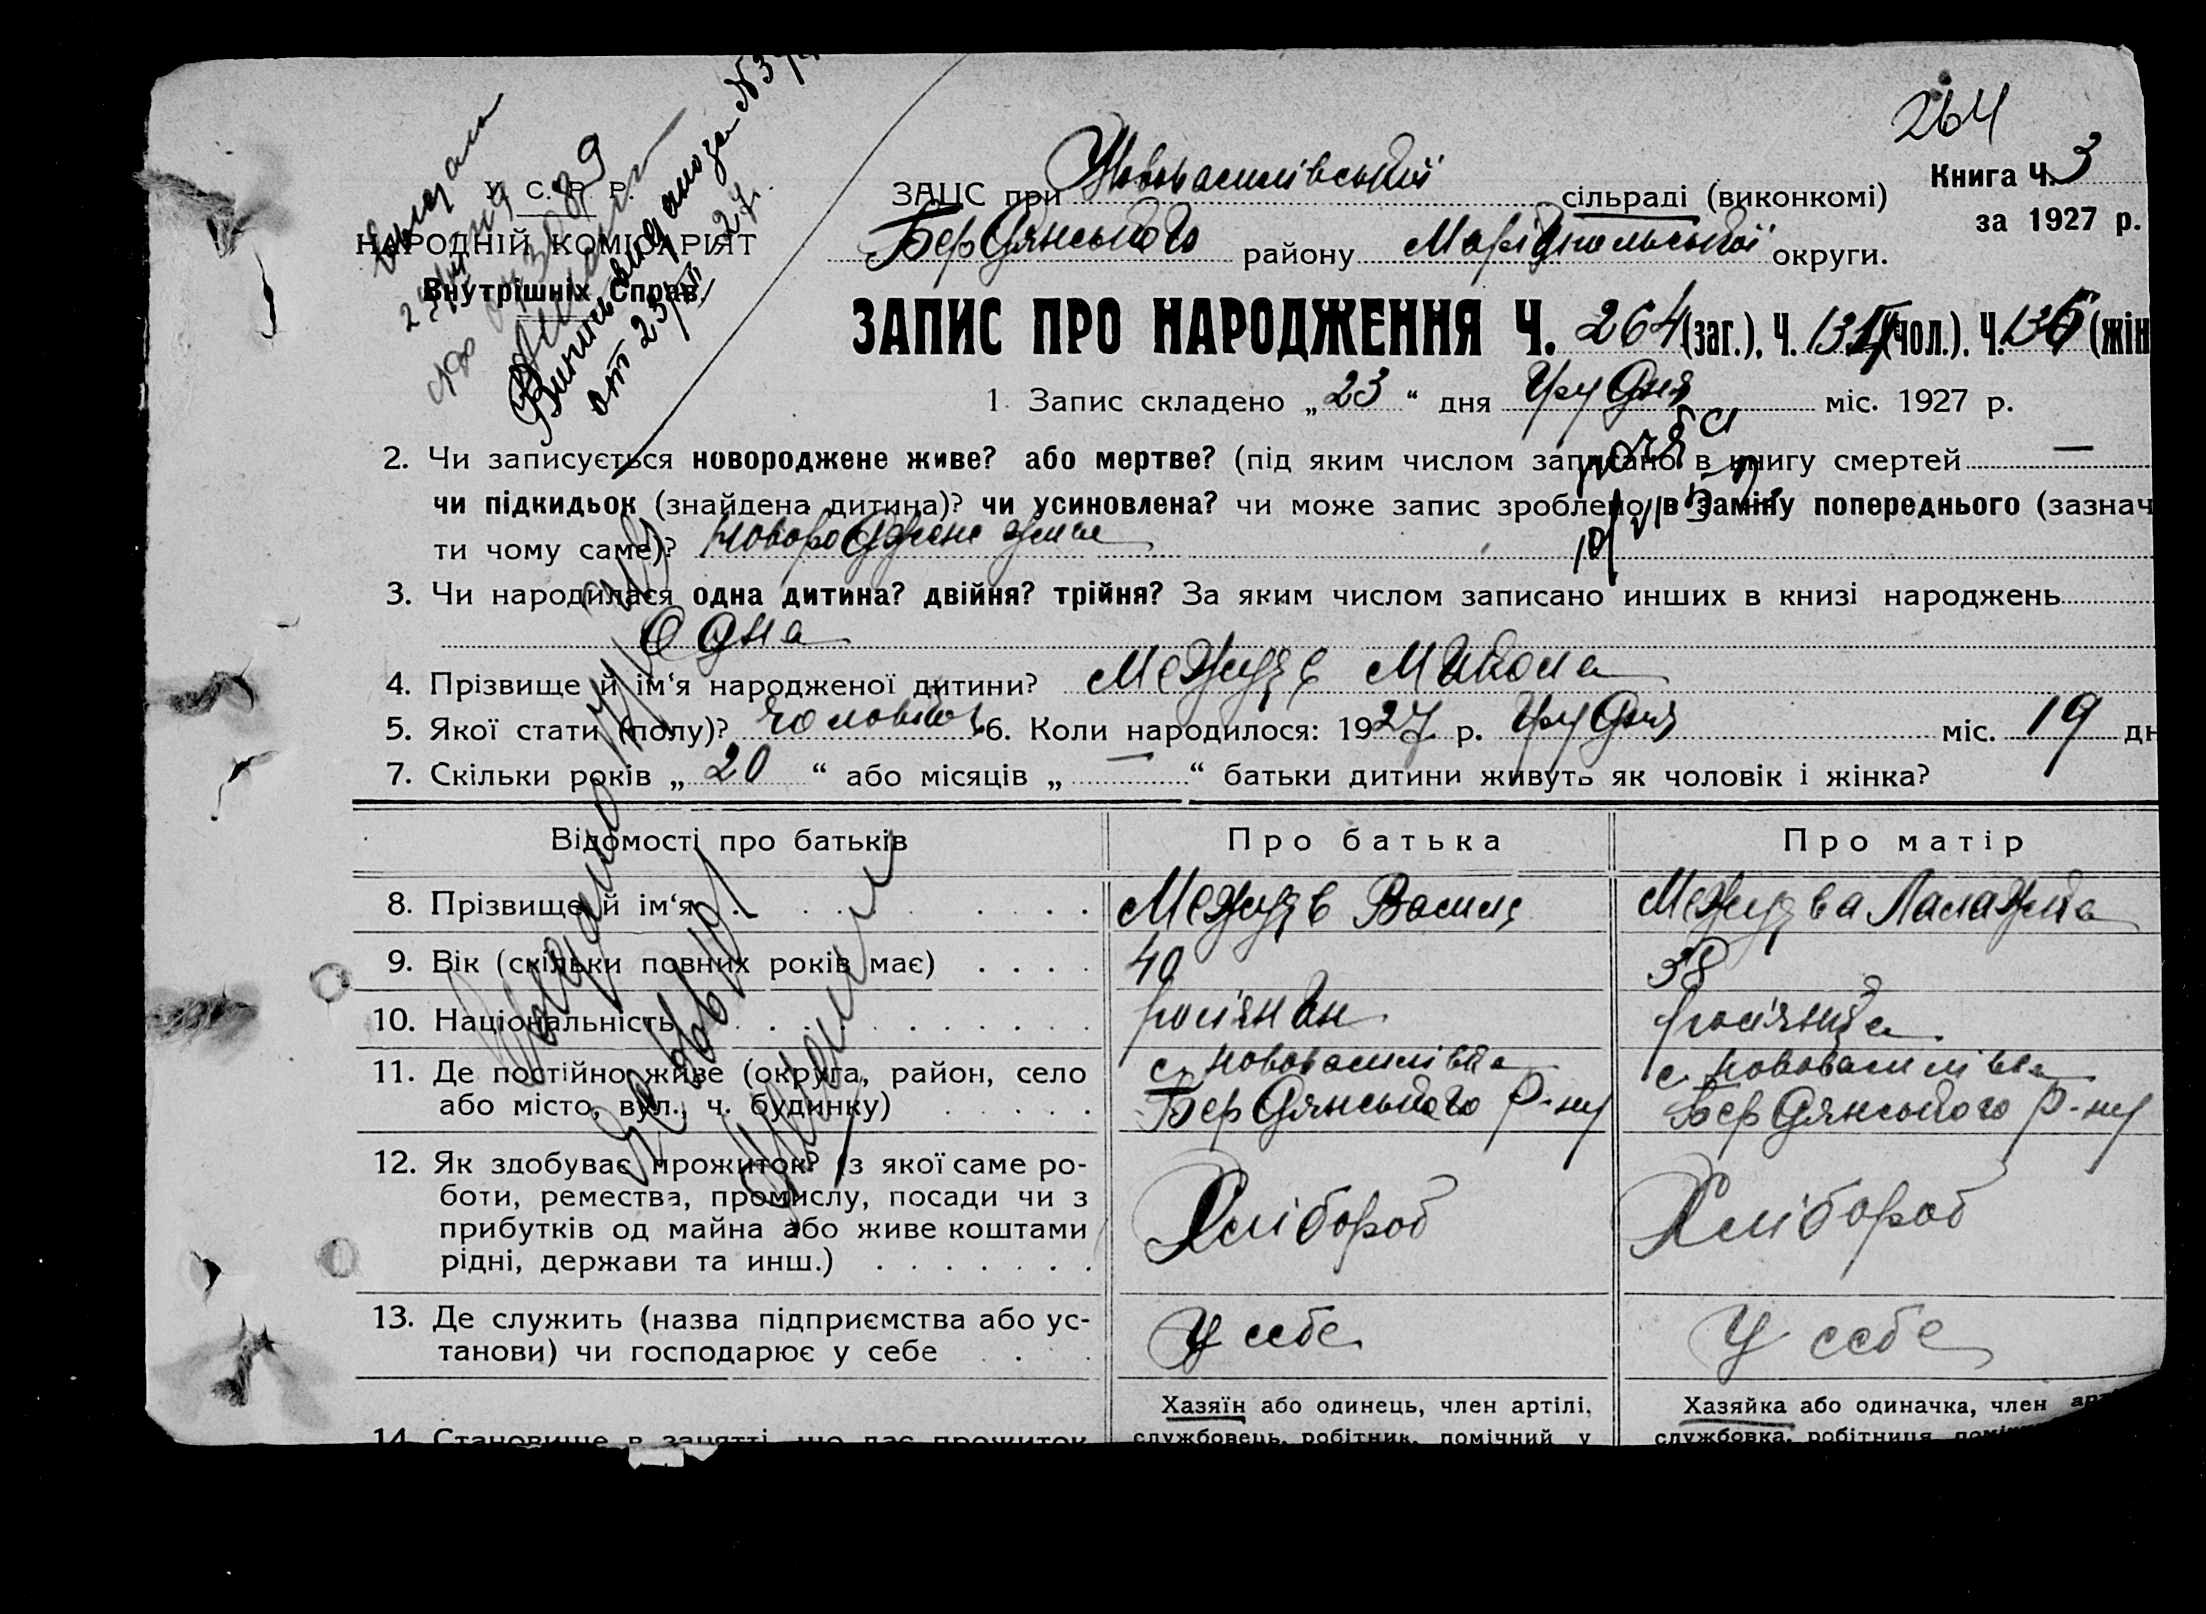 264
У. С. Р. Р.
НАРОДНІЙ КОМІСАРІЯТ
Внутрішніх Справ
ЗАЦС при Нововасилівській сільраді (виконкомі)
Книга Ч. 3
за 1927 р.
Бердянського району Маріупольської округи.
ЗАПИС ПРО НАРОДЖЕННЯ Ч. 264 (заг.), Ч. (чол.). Ч. (жін
1. Запис складено „ 23 “ дня Грудня міс. 1927 р.
2. Чи записується новороджене живе? або мертве? (під яким числом записано в книгу смертей —
чи підкидьок (знайдена дитина)? чи усиновлена? чи може запис зроблено в заміну попереднього (зазнач
ти чому саме)? новороджене живе
3. Чи народилася одна дитина? двійня? трійня? За яким числом записано инших в книзі народжень
Одна
4. Прізвище й ім‘я народженої дитини? Межуєв Микола
5. Якої стати (полу)? чоловік 6. Коли народилося: 1927 р. Грудня міс. 19 дн
7. Скільки років „ 20 “ або місяців „ — “ батьки дитини живуть як чоловік і жінка?
Відомості про батьків Про батька Про матір
8. Прізвище й ім‘я Межуєв Василь Межуєва Палажка
9. Вік (скільки повних років має) 40 38
10. Національність росіянин росіянка
11. Де постійно живе (округа, район, село с. Нововасилівка с. Нововасилівка
або місто, вул., ч. будинку) Бердянського р-ну Бердянського р-ну
12. Як здобуває прожиток? (з якої саме ро-
боти, ремества, промислу, посади чи з Хлібороб Хлібороб
прибутків од майна або живе коштами
рідні, держави та инш.)
13. Де служить (назва підприємства або ус- У себе У себе
танови) чи господарює у себе
Хазяїн або одинець, член артілі, Хазяйка або одиначка, член
14. Становище в занятті, що дає прожиток службовець, робітник, помічний у службовка, робітниця